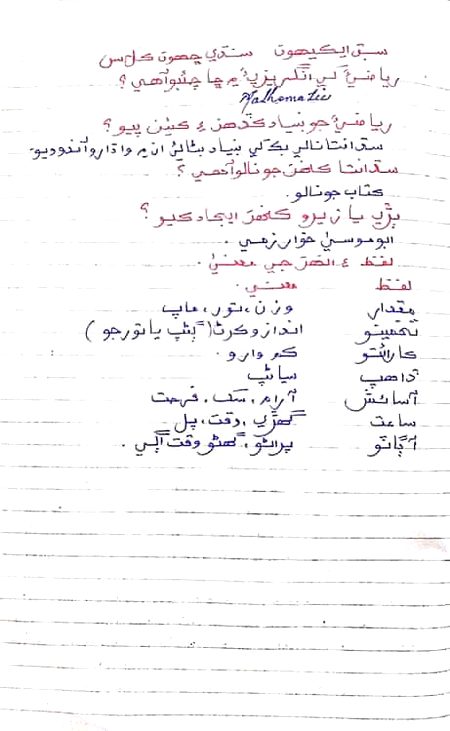 سبق ايڪيهون سنڌي ڇهون ڪلاس
رياضيءَ کي انگريزيءَ ۾ ڇا چئبو آهي؟
Mathematic
رياضيءَ جو بنياد ڪڏهن ۽ ڪيئن پيو؟
سڌانتا نالي بڪ کي بنياد بڻائي ان ۾ واڌارو آندو ويو.
سڌانتا ڪهڙن جو نالو آهي؟
ڪتاب جو نالو.
ٻڙي يا زيرو ڪنهن ايجاد ڪيو؟
ابو موسيٰ خوارزمي.
لفظ ۽ انهن جي معنيٰ.
لفظ معنيٰ.
مقدار وزن، تور، ماپ
تخمينو اندازو ڪرڻ (ڳڻپ يا تور جو)
ڪارائتو ڪم وارو.
ڏاهپ سياڻپ
آسائش آرام، سک، فرحت
ساعت گهڙي، وقت، پل
آڳاٽو پراڻو، گهڻو وقت اڳي.